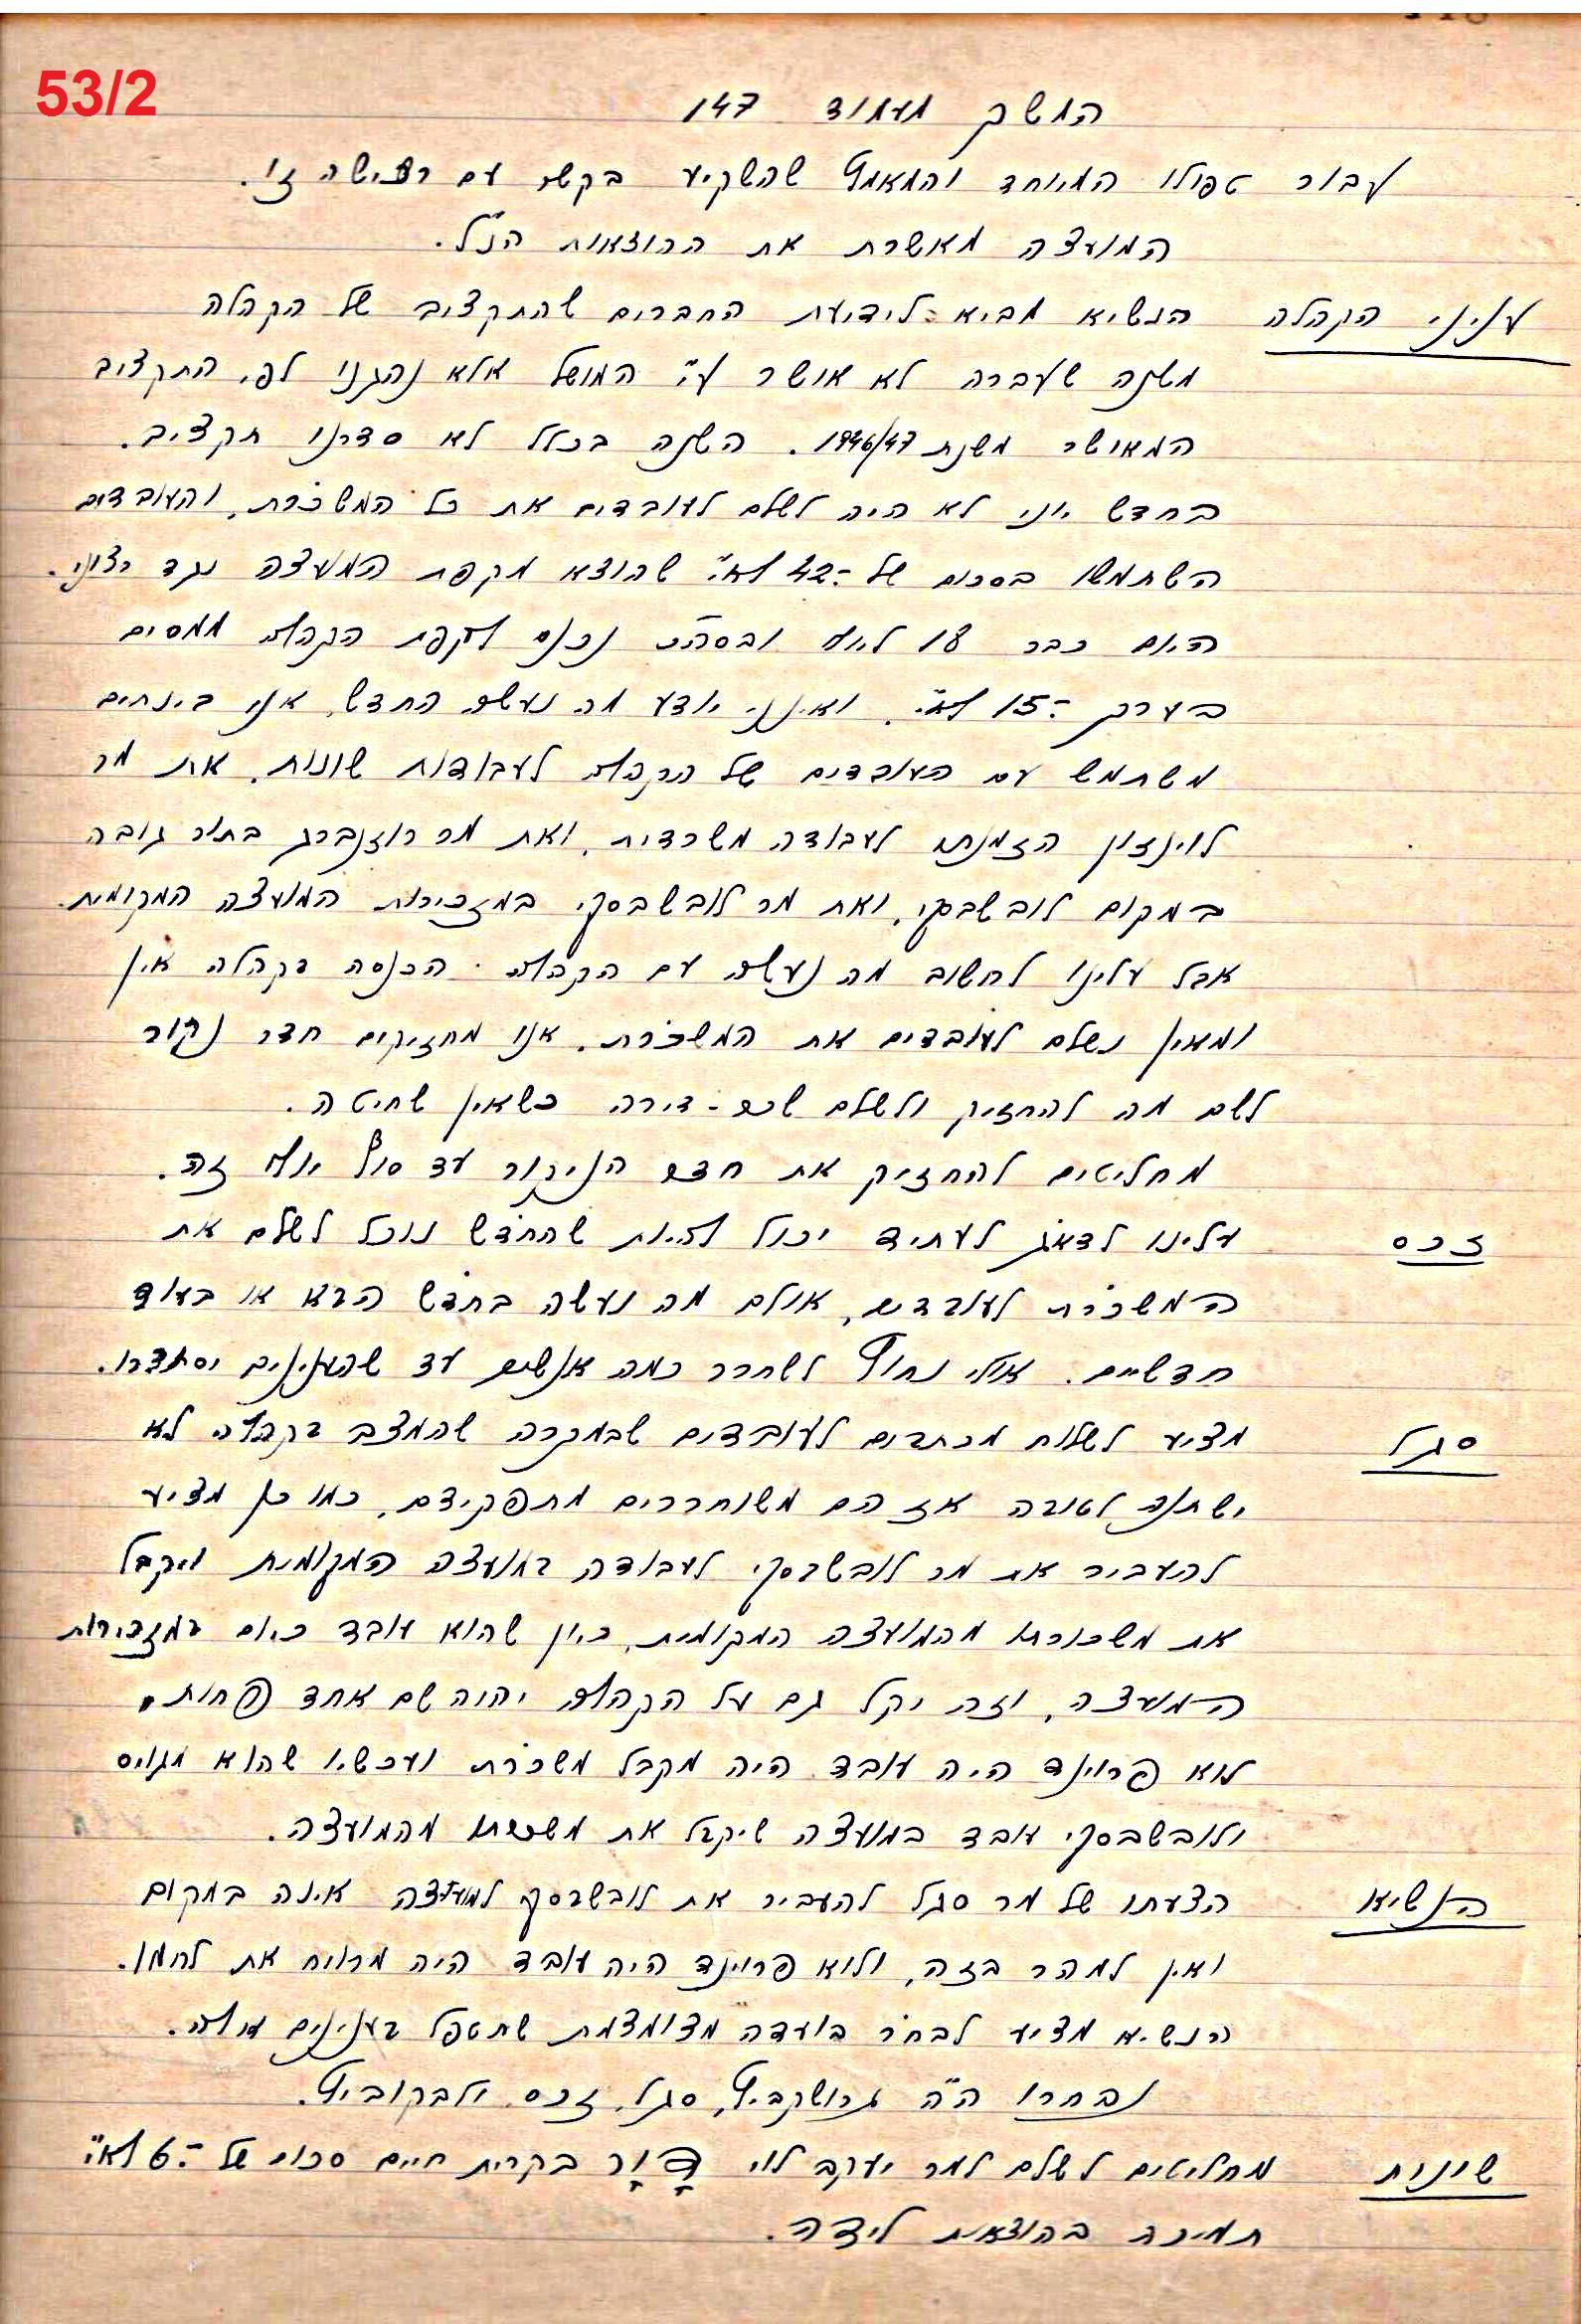 53/2
המשך מעמוד 147
עבור טפולו המיוחד והמאמץ שהשקיע בקשר עם רכישה זו.
המועצה מאשרת את ההוצאות הנ"ל.
עניני הקהלה הנשיא מביא לידיעת החברים שהתקציב של הקהלה
משנה שעברה לא אושר ע"י המושל אלא נהגנו לפי התקציב
המאושר משנת 1946/47. השנה בכלל לא סדרנו תקציב.
בחדש יוני לא היה לשלם לעובדים את כל המשכרת, והעובדים
השתמשו בסכום של 42.- לא"י שהוצא מקפת המועצה נגד רצוני.
היום כבר 18 ליולי ובסה"כ נכנס לקפת הקהלה ממסים
בערך 15.- לא"י. ואינני יודע מה נעשה החדש, אני בינתים
משתמש עם העובדים של הקהלה לעבודות שונות. את מר
לוינזון הזמנתי לעבודה משרדית, ואת מר רוזנברג בתור גובה
במקום לובשבסקי, ואת מר לובשבסקי במזכירות המועצה המקומית.
אבל עלינו לחשוב מה נעשה עם הקהלה. הכנסה בקהלה אין
ומאין נשלם לעובדים את המשכרת. אנו מחזיקים חדר נקור
לשם מה להחזיק ולשלם שכר-דירה כשאין שחיטה.
מחליטים להחזיק את חדר הניקור עד סוף יולי זה.
זכס עלינו לדאוג לעתיד יכול להיות שהחדש נוכל לשלם את
המשכרת לעובדים, אולם מה נעשה בחדש הבא או בעוד
חדשיים. אולי נחוץ לשחרר כמה אנשים עד שהענינים יסתדרו.
סגל מציע לשלוח מכתבים לעובדים שבמקרה שהמצב בקהלה לא
ישתנה לטובה אז הם משוחררים מתפקידם, כמו כן מציע
להעביר את מר לובשבסקי לעבודה במועצה המקומית ויקבל
את משכורתו מהמועצה המקומית, כיון שהוא עובד כיום במזכירות
המועצה, וזה יקל גם על הקהלה יהיה שם אחד פחות.
לוא פרוינד היה עובד היה מקבל משכרת ועכשיו שהוא מגויס
ולובשבסקי עובד במועצה שיקבל את משכורתו מהמועצה.
הנשיא הצעתו של מר סגל להעביר את לובשבסקי למועצה אינה במקום
ואין למהר בזה, ולוא פרוינד היה עובד היה מרויח את לחמו.
הנשיא מציע לבחר בועדה מצומצמת שתטפל בענינים אלה.
נבחרו ה"ה גרושקביץ, סגל, זכס ולבקוביץ.
שונות מחליטים לשלם למר יעקב לוי דַּוָּר בקרית חיים סכום של 6.- לא"י
תמיכה בהוצאות לידה.